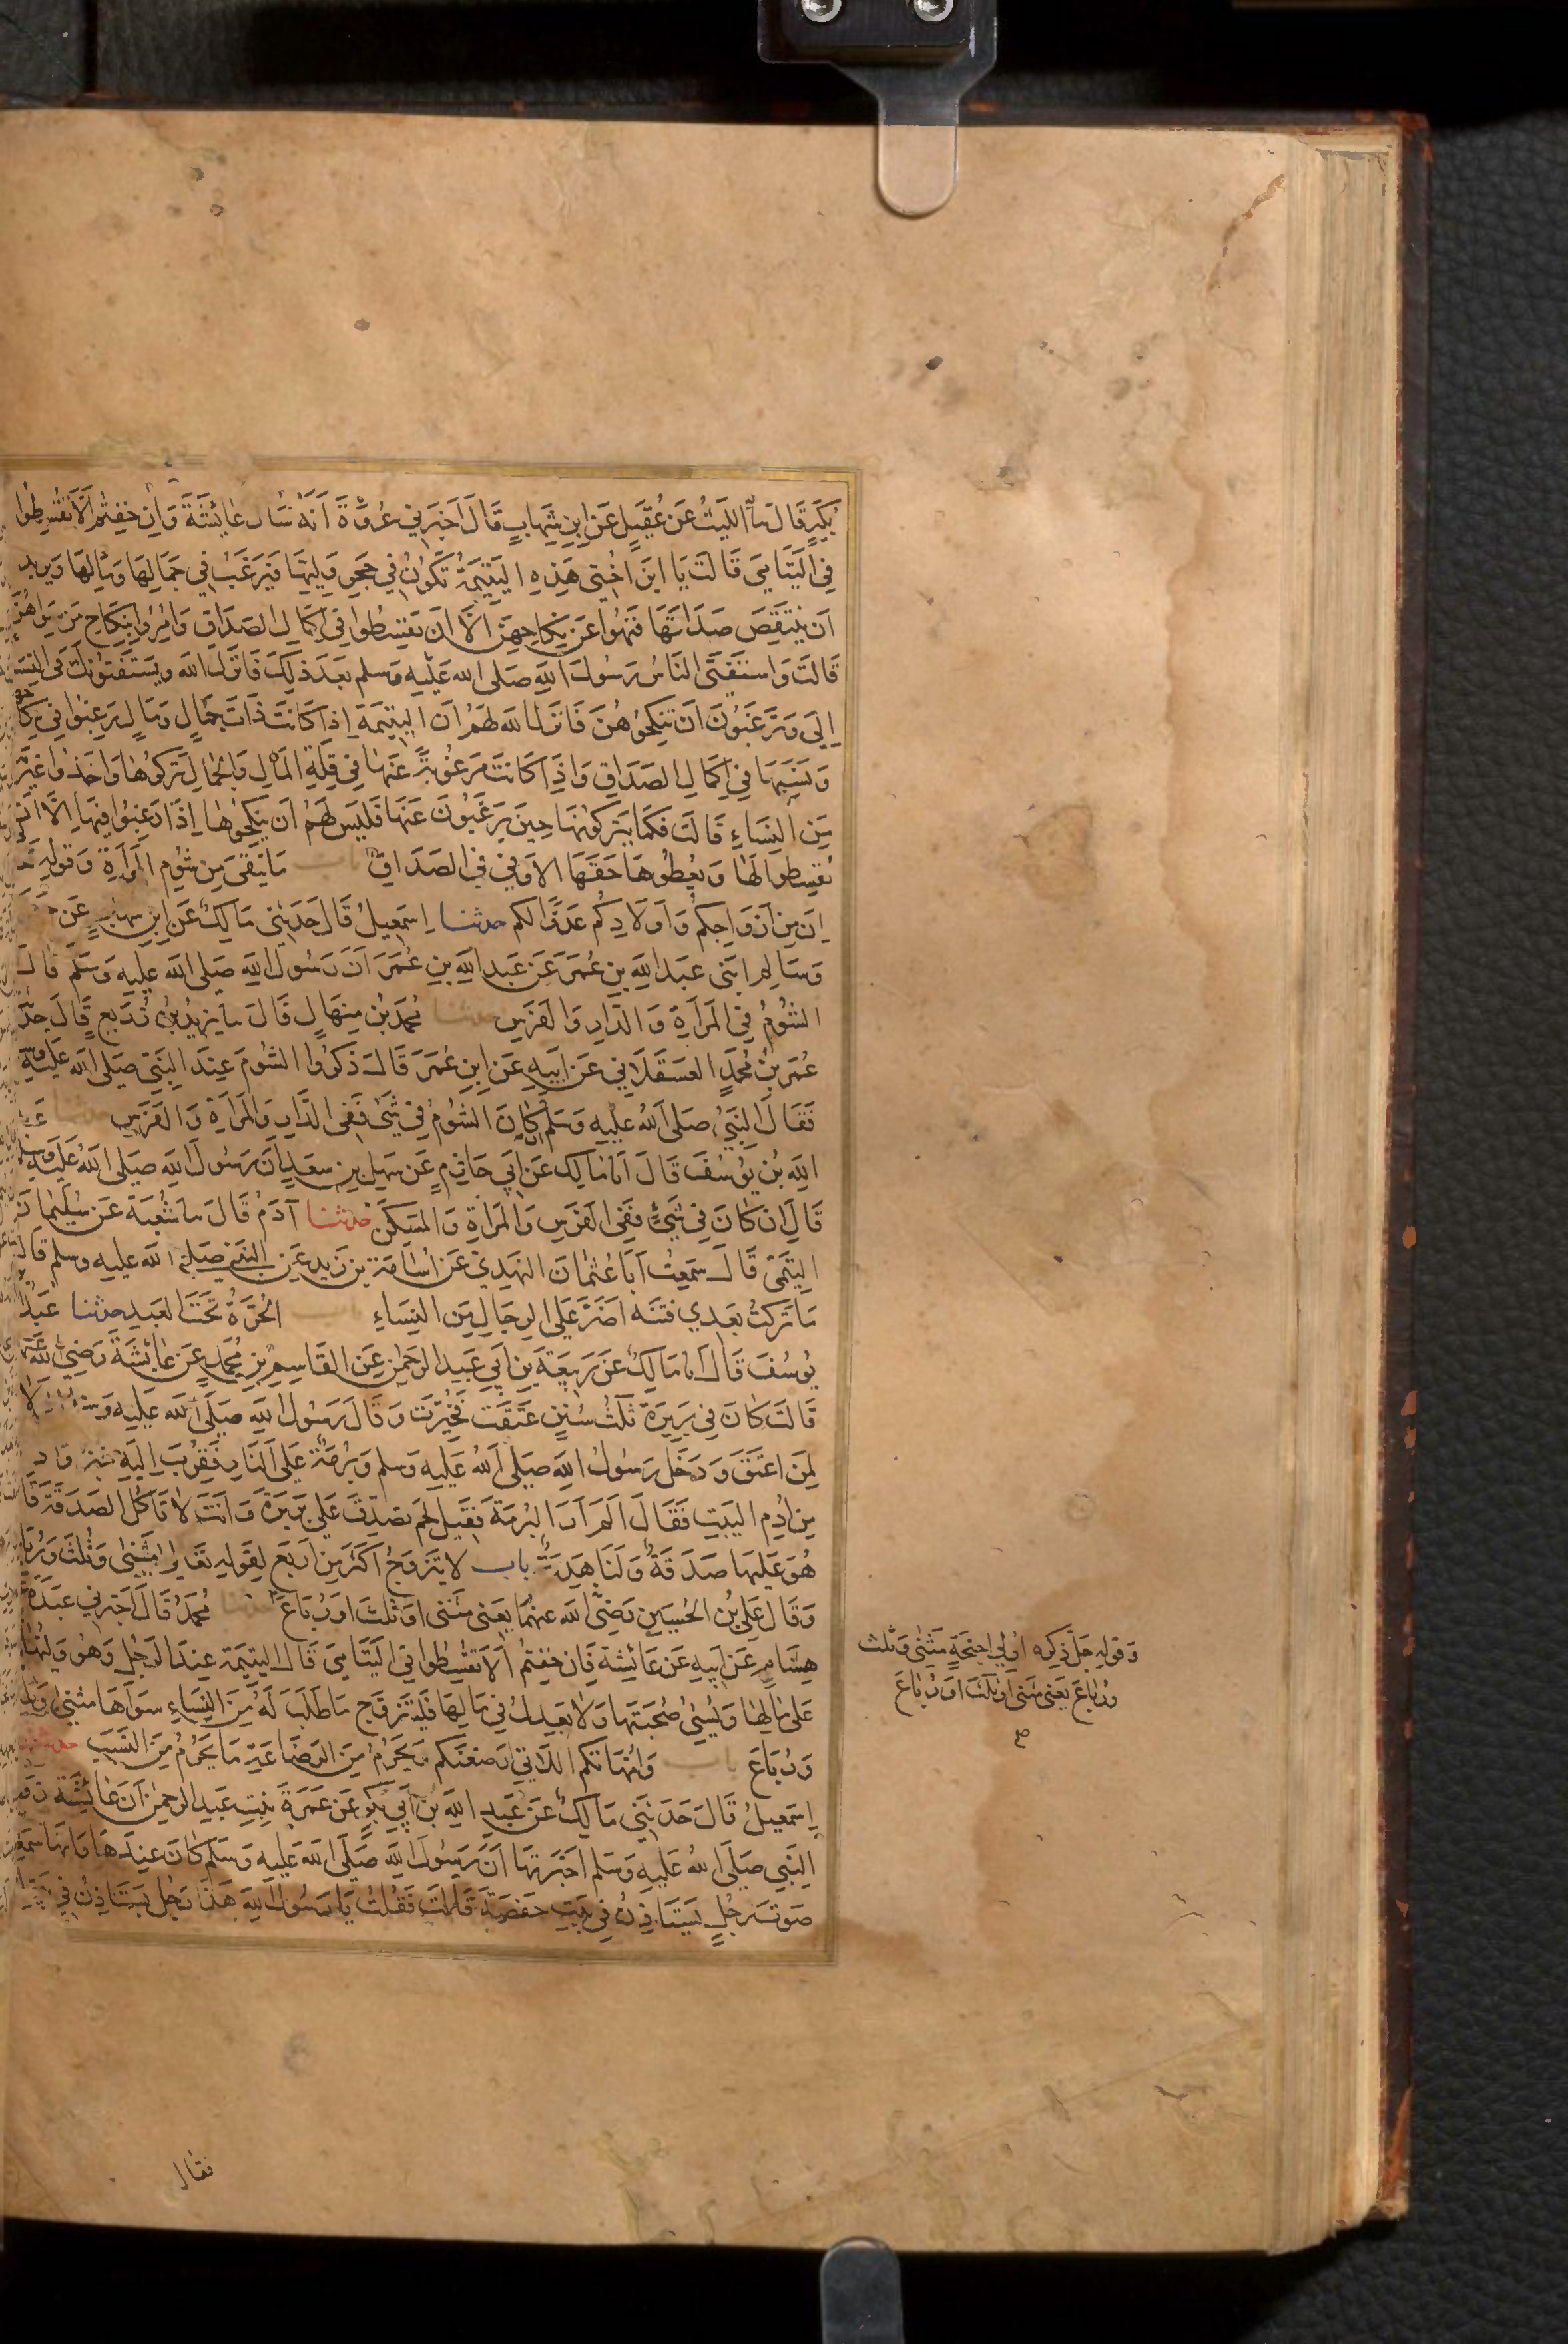 بُكَيْرٍ قَالَ نا اللَّيْثُ عَنْ عُقَيْلٍ عَنِ ابْنِ شِهَابٍ قَالَ أَخْبَرَنِي عُرْوَةُ أَنَّهُ سَأَلَ عَائِشَةَ وَإِنْ خِفْتُمْ أَلَّا تُقْسِطُوا
فِي الْيَتَامَى قَالَتْ يَا ابْنَ أُخْتِي هَذِهِ الْيَتِيمَةُ تَكُونُ فِي حَجْرِ وَلِيِّهَا فَيَرْغَبُ فِي جَمَالِهَا وَمَالِهَا وَيُرِيدُ
أَنْ يَنْتَقِصَ صَدَاقَهَا فَنُهُوا عَنْ نِكَاحِهِنَّ إِلَّا أَنْ يُقْسِطُوا فِي إِكْمَالِ الصَّدَاقِ وَأُمِرُوا بِنِكَاحِ مَنْ سِوَاهُنَّ
قَالَتْ وَاسْتَفْتَى النَّاسُ رَسُولَ اللَّهِ صَلَّى اللَّهُ عَلَيْهِ وَسَلَّمَ بَعْدَ ذَلِكَ فَأَنْزَلَ اللَّهُ وَيَسْتَفْتُونَكَ فِي النِّسَاءِ
إِلَى وَتَرْغَبُونَ أَنْ تَنْكِحُوهُنَّ فَأَنْزَلَ اللَّهُ لَهُمْ أَنَّ الْيَتِيمَةَ إِذَا كَانَتْ ذَاتَ جَمَالٍ وَمَالٍ رَغِبُوا فِي نِكَاحِهَا
وَنَسَبِهَا فِي إِكْمَالِ الصَّدَاقِ وَإِذَا كَانَتْ مَرْغُوبَةً عَنْهَا فِي قِلَّةِ الْمَالِ وَالْجَمَالِ تَرَكُوهَا وَأَخَذُوا غَيْرَهَا
مِنَ النِّسَاءِ قَالَتْ فَكَمَا يَتْرُكُونَهَا حِينَ يَرْغَبُونَ عَنْهَا فَلَيْسَ لَهُمْ أَنْ يَنْكِحُوهَا إِذَا رَغِبُوا فِيهَا إِلَّا أَنْ
يُقْسِطُوا لَهَا وَيُعْطُوهَا حَقَّهَا الْأَوْفَى فِي الصَّدَاقِ باب مَا يُتَّقَى مِنْ شُؤْمِ الْمَرْأَةِ وَقَوْلِهِ
إِنَّ مِنْ أَزْوَاجِكُمْ وَأَوْلَادِكُمْ عَدُوًّا لَكُمْ حدثنا إِسْمَعِيلُ قَالَ حَدَّثَنِي مَالِكٌ عَنِ ابْنِ شِهَابٍ عَنْ
وَسَالِمٍ ابْنَيْ عَبْدِ اللَّهِ بْنِ عُمَرَ عَنْ عَبْدِ اللَّهِ بْنِ عُمَرَ أَنَّ رَسُولَ اللَّهِ صَلَّى اللَّهُ عَلَيْهِ وَسَلَّمَ قَالَ
الشُّؤْمُ فِي الْمَرْأَةِ وَالدَّارِ وَالْفَرَسِ حدثنا مُحَمَّدُ بْنُ مِنْهَالٍ قَالَ نا يَزِيدُ بْنُ زُرَيْعٍ قَالَ حدثنا
عُمَرُ بْنُ مُحَمَّدٍ الْعَسْقَلَانِيُّ عَنْ أَبِيهِ عَنِ ابْنِ عُمَرَ قَالَ ذَكَرُوا الشُّؤْمَ عِنْدَ النَّبِيِّ صَلَّى اللَّهُ عَلَيْهِ وَسَلَّمَ
فَقَالَ النَّبِيُّ صَلَّى اللَّهُ عَلَيْهِ وَسَلَّمَ إِنْ كَانَ الشُّؤْمُ فِي شَيْءٍ فَفِي الدَّارِ وَالْمَرْأَةِ وَالْفَرَسِ حدثنا عَبْدُ
اللَّهِ بْنُ يُوسُفَ قَالَ أنا مَالِكٌ عَنْ أَبِي حَازِمٍ عَنْ سَهْلِ بْنِ سَعْدٍ أَنَّ رَسُولَ اللَّهِ صَلَّى اللَّهُ عَلَيْهِ وَسَلَّمَ
قَالَ إِنْ كَانَ فِي شَيْءٍ فَفِي الْفَرَسِ وَالْمَرْأَةِ وَالْمَسْكَنِ حدثنا آدَمُ قَالَ نا شُعْبَةُ عَنْ سُلَيْمَانَ
التَّيْمِيِّ قَالَ سَمِعْتُ أَبَا عُثْمَانَ النَّهْدِيَّ عَنْ أُسَامَةَ بْنِ زَيْدٍ عَنِ النَّبِيِّ صَلَّى اللَّهُ عَلَيْهِ وَسَلَّمَ قَالَ
مَا تَرَكْتُ بَعْدِي فِتْنَةً أَضَرَّ عَلَى الرِّجَالِ مِنَ النِّسَاءِ باب الْحُرَّةُ تَحْتَ الْعَبْدِ حدثنا عَبْدُ
يُوسُفَ قَالَ أنا مَالِكٌ عَنْ رَبِيعَةَ بْنِ أَبِي عَبْدِ الرَّحْمَنِ عَنِ الْقَاسِمِ بْنِ مُحَمَّدٍ عَنْ عَائِشَةَ رَضِيَ اللَّهُ عَنْهَا
قَالَتْ كَانَ فِي بَرِيرَةَ ثَلَاثُ سُنَنٍ عَتَقَتْ فَخُيِّرَتْ وَقَالَ رَسُولُ اللَّهِ صَلَّى اللَّهُ عَلَيْهِ وَسَلَّمَ
لِمَنْ أَعْتَقَ وَدَخَلَ رَسُولُ اللَّهِ صَلَّى اللَّهُ عَلَيْهِ وَسَلَّمَ وَبُرْمَةٌ عَلَى النَّارِ فَقُرِّبَ إِلَيْهِ خُبْزٌ وَأُدْ
مِنْ أُدْمِ الْبَيْتِ فَقَالَ أَلَمْ أَرَ الْبُرْمَةَ فَقِيلَ لَحْمٌ تُصُدِّقَ عَلَى بَرِيرَةَ وَأَنْتَ لَا تَأْكُلُ الصَّدَقَةَ قَا
هُوَ عَلَيْهَا صَدَقَةٌ وَلَنَا هَدِيَّةٌ باب لَا يَتَزَوَّجُ أَكْثَرَ مِنْ أَرْبَعٍ لِقَوْلِهِ تَعَالَى مَثْنَى وَثُلَثَ وَرُبَاعَ
وَقَالَ عَلِيُّ بْنُ الْحُسَيْنِ رَضِيَ اللَّهُ عَنْهُمَا يَعْنِي مَثْنَى أَوْ ثُلَثَ أَوْ رُبَاعَ حدثنا مُحَمَّدٌ قَالَ أَخْبَرَنِي عَبْدَةُ
هِشَامٍ عَنْ أَبِيهِ عَنْ عَائِشَةَ فَإِنْ خِفْتُمْ أَلَّا تُقْسِطُوا فِي الْيَتَامَى قَالَ الْيَتِيمَةُ عِنْدَ الرَّجُلِ وَهُوَ وَلِيُّهَا
عَلَى مَالِهَا وَيُسِيءُ صُحْبَتَهَا وَلَا يَعْدِلُ فِي مَالِهَا فَلْيَتَزَوَّجْ مَا طَابَ لَهُ مِنَ النِّسَاءِ سِوَاهَا مَثْنَى وَثُلَثَ
وَرُبَاعَ باب وَأُمَّهَاتُكُمُ اللَّاتِي أَرْضَعْنَكُمْ يَحْرُمُ مِنَ الرَّضَاعَةِ مَا يَحْرُمُ مِنَ النَّسَبِ حدثنا
إِسْمَعِيلُ قَالَ حَدَّثَنِي مَالِكٌ عَنْ عَبْدِ اللَّهِ بْنِ أَبِي بَكْرٍ عَنْ عَمْرَةَ بِنْتِ عَبْدِ الرَّحْمَنِ أَنَّ عَائِشَةَ زَوْجَ
النَّبِيِّ صَلَّى اللَّهُ عَلَيْهِ وَسَلَّمَ أَخْبَرَتْهَا أَنَّ رَسُولَ اللَّهِ صَلَّى اللَّهُ عَلَيْهِ وَسَلَّمَ كَانَ عِنْدَهَا وَأَنَّهَا سَمِعَتْ
صَوْتَ رَجُلٍ يَسْتَأْذِنُ فِي بَيْتِ حَفْصَةَ قَالَتْ فَقُلْتُ يَا رَسُولَ اللَّهِ هَذَا رَجُلٌ يَسْتَأْذِنُ فِي
وَقَوْلِهِ جَلَّ ذِكْرُهُ أُولِي أَجْنِحَةٍ مَثْنَى وَثُلَثَ
وَرُبَاعَ يَعْنِي مَثْنَى أَوْ ثُلَثَ أَوْ رُبَاعَ
فقال